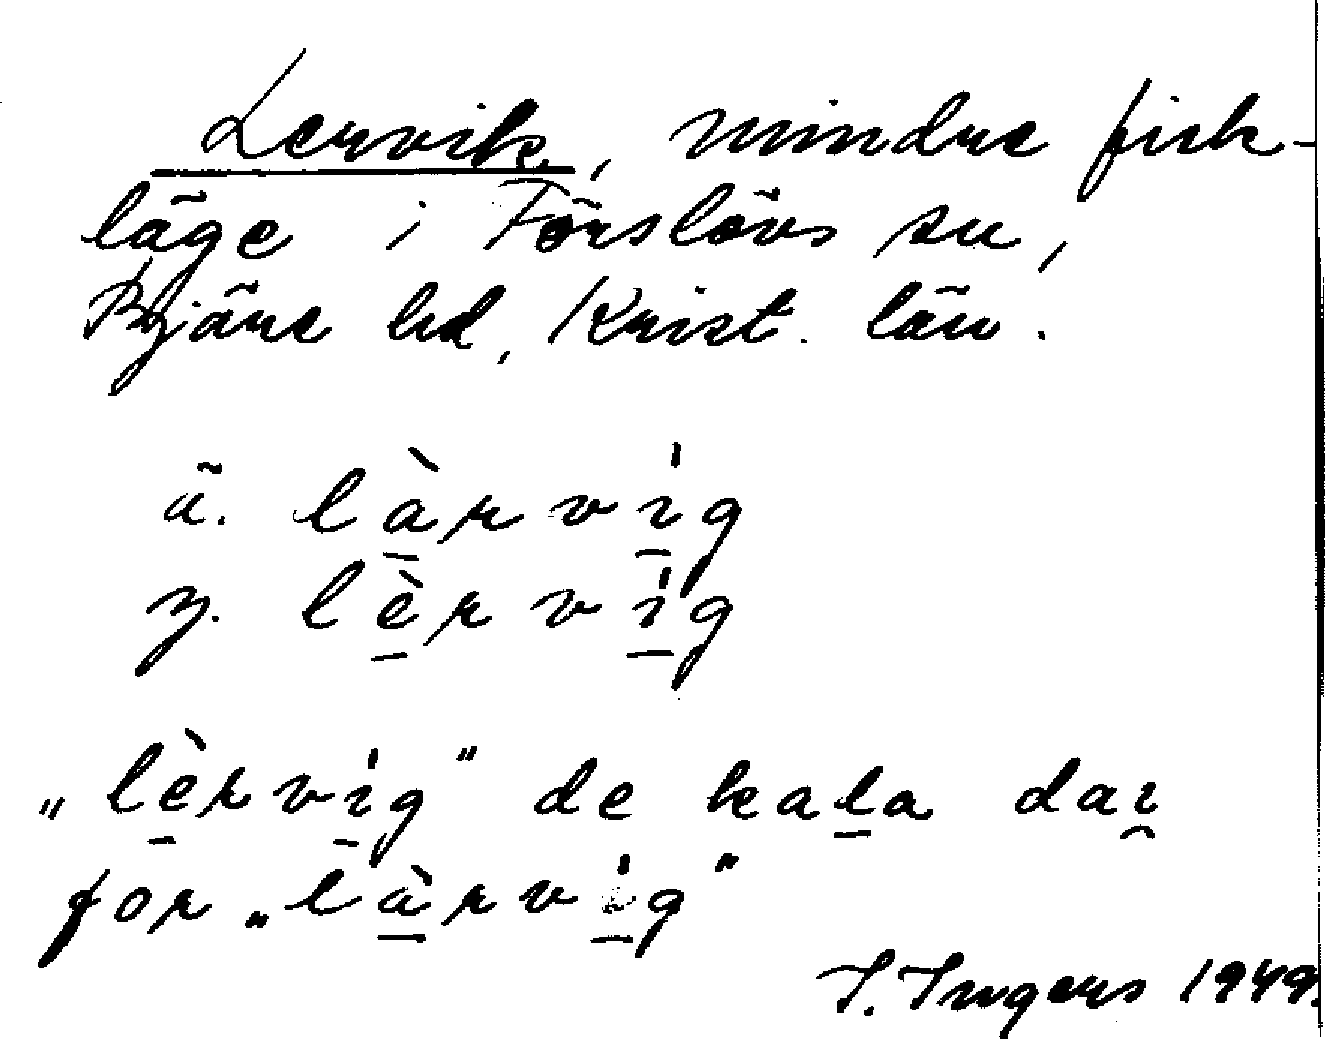 Lervik, mindre fisk-
läge i Förslövs sn,
Bjäre hd, Krist. län.
ä. làrvig
y. lèrvig
„lèrvig" de kala dai
for „làrvig"
I. Ingers 1949.